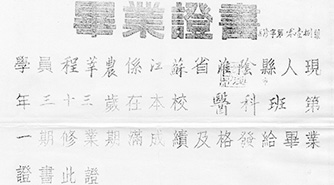 畢業證書
字第壹捌號
學員程萃農係江蘇省淮陰縣人現
年三十三歲在本校醫科班第
一期修業期滿成績及格發給畢業
證書此證